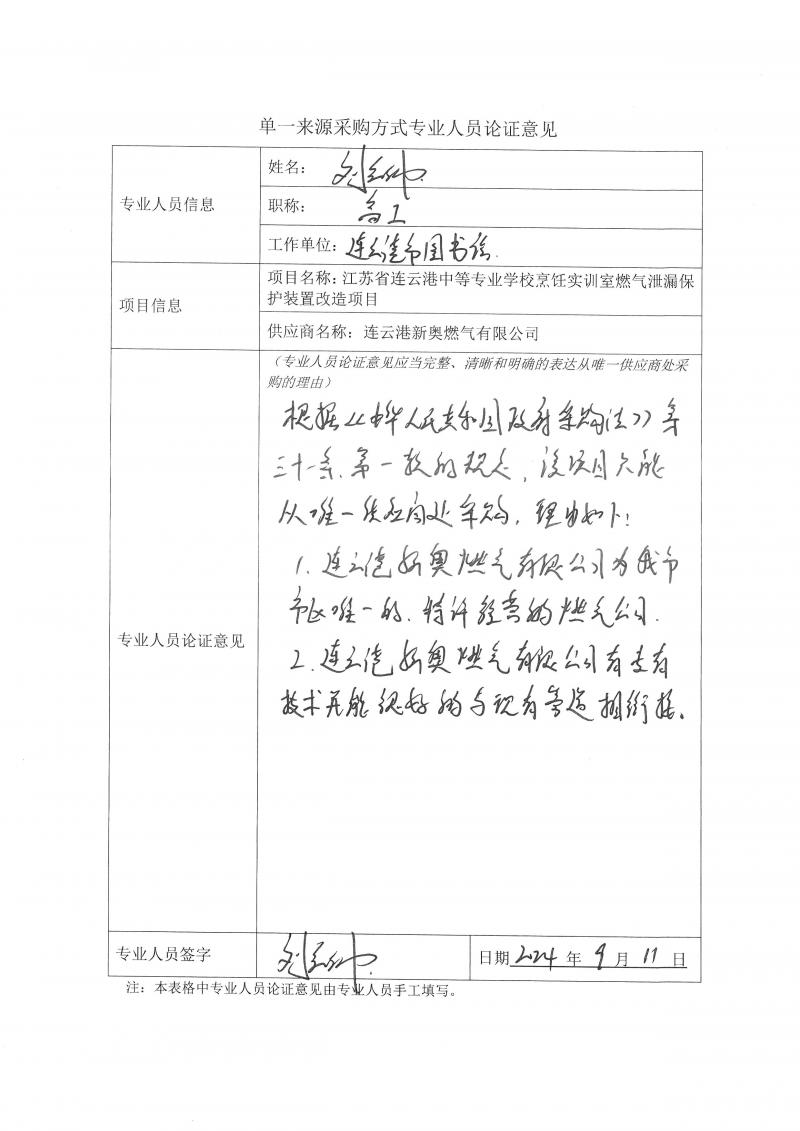 单一来源采购方式专业人员论证意见
专业人员信息
姓名：刘
职称：高工
工作单位：连云港市图书馆.
项目信息
项目名称：江苏省连云港中等专业学校烹饪实训室燃气泄漏保
护装置改造项目
供应商名称：连云港新奥燃气有限公司
专业人员论证意见
（专业人员论证意见应当完整、清晰和明确的表达从唯一供应商处采
购的理由）
根据《中华人民共和国政府采购法》第
三十一条、第一款的规定，该项目只能
从唯一供应商处采购，理由如下：
1. 连云港新奥燃气有限公司为我市
市区唯一的、特许经营的燃气公司.
2. 连云港新奥燃气有限公司有专有
技术并能很好的与现有管道相衔接。
专业人员签字
刘
日期 2024 年 9 月 11 日
注：本表格中专业人员论证意见由专业人员手工填写。